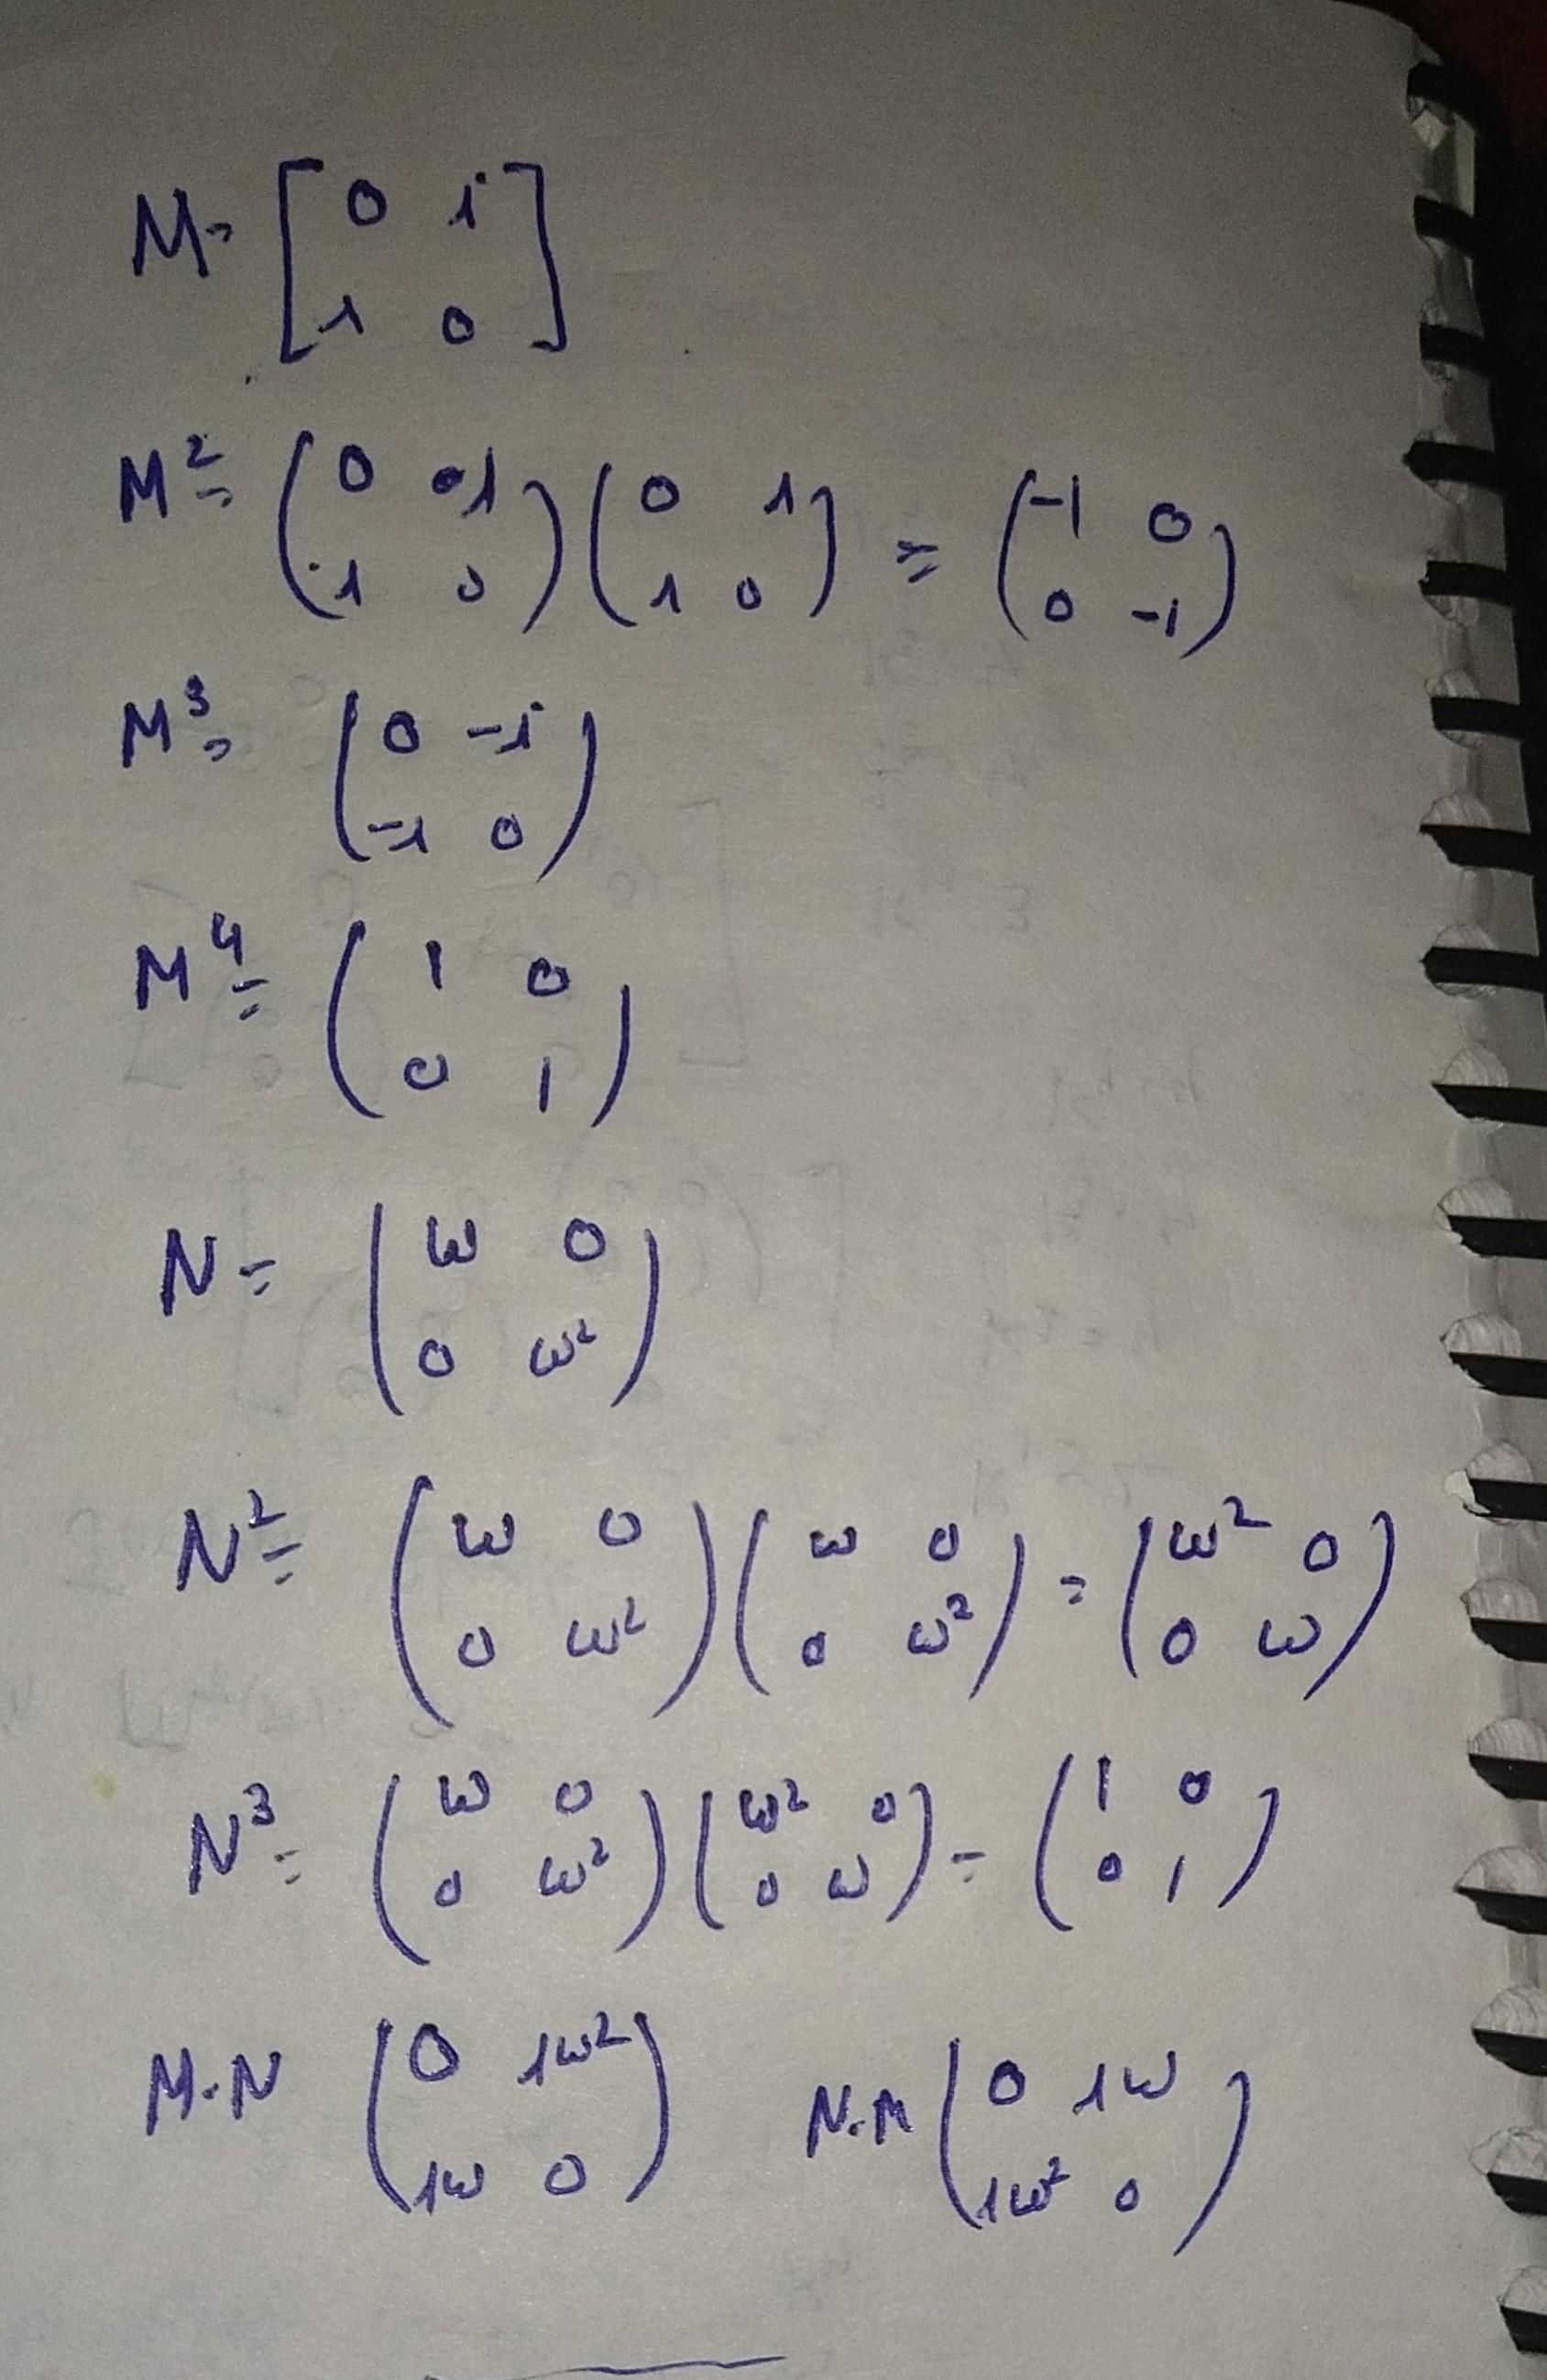 M = [ 0 i
i 0 ]
M² = ( 0 i
i 0 ) ( 0 i
i 0 ) = ( -1 0
0 -1 )
M³ = ( 0 -i
-i 0 )
M⁴ = ( 1 0
0 1 )
N = ( ω 0
0 ω² )
N² = ( ω 0
0 ω² ) ( ω 0
0 ω² ) = ( ω² 0
0 ω )
N³ = ( ω 0
0 ω² ) ( ω² 0
0 ω ) = ( 1 0
0 1 )
M·N ( 0 iω²
iω 0 ) N·M ( 0 iω
iω² 0 )